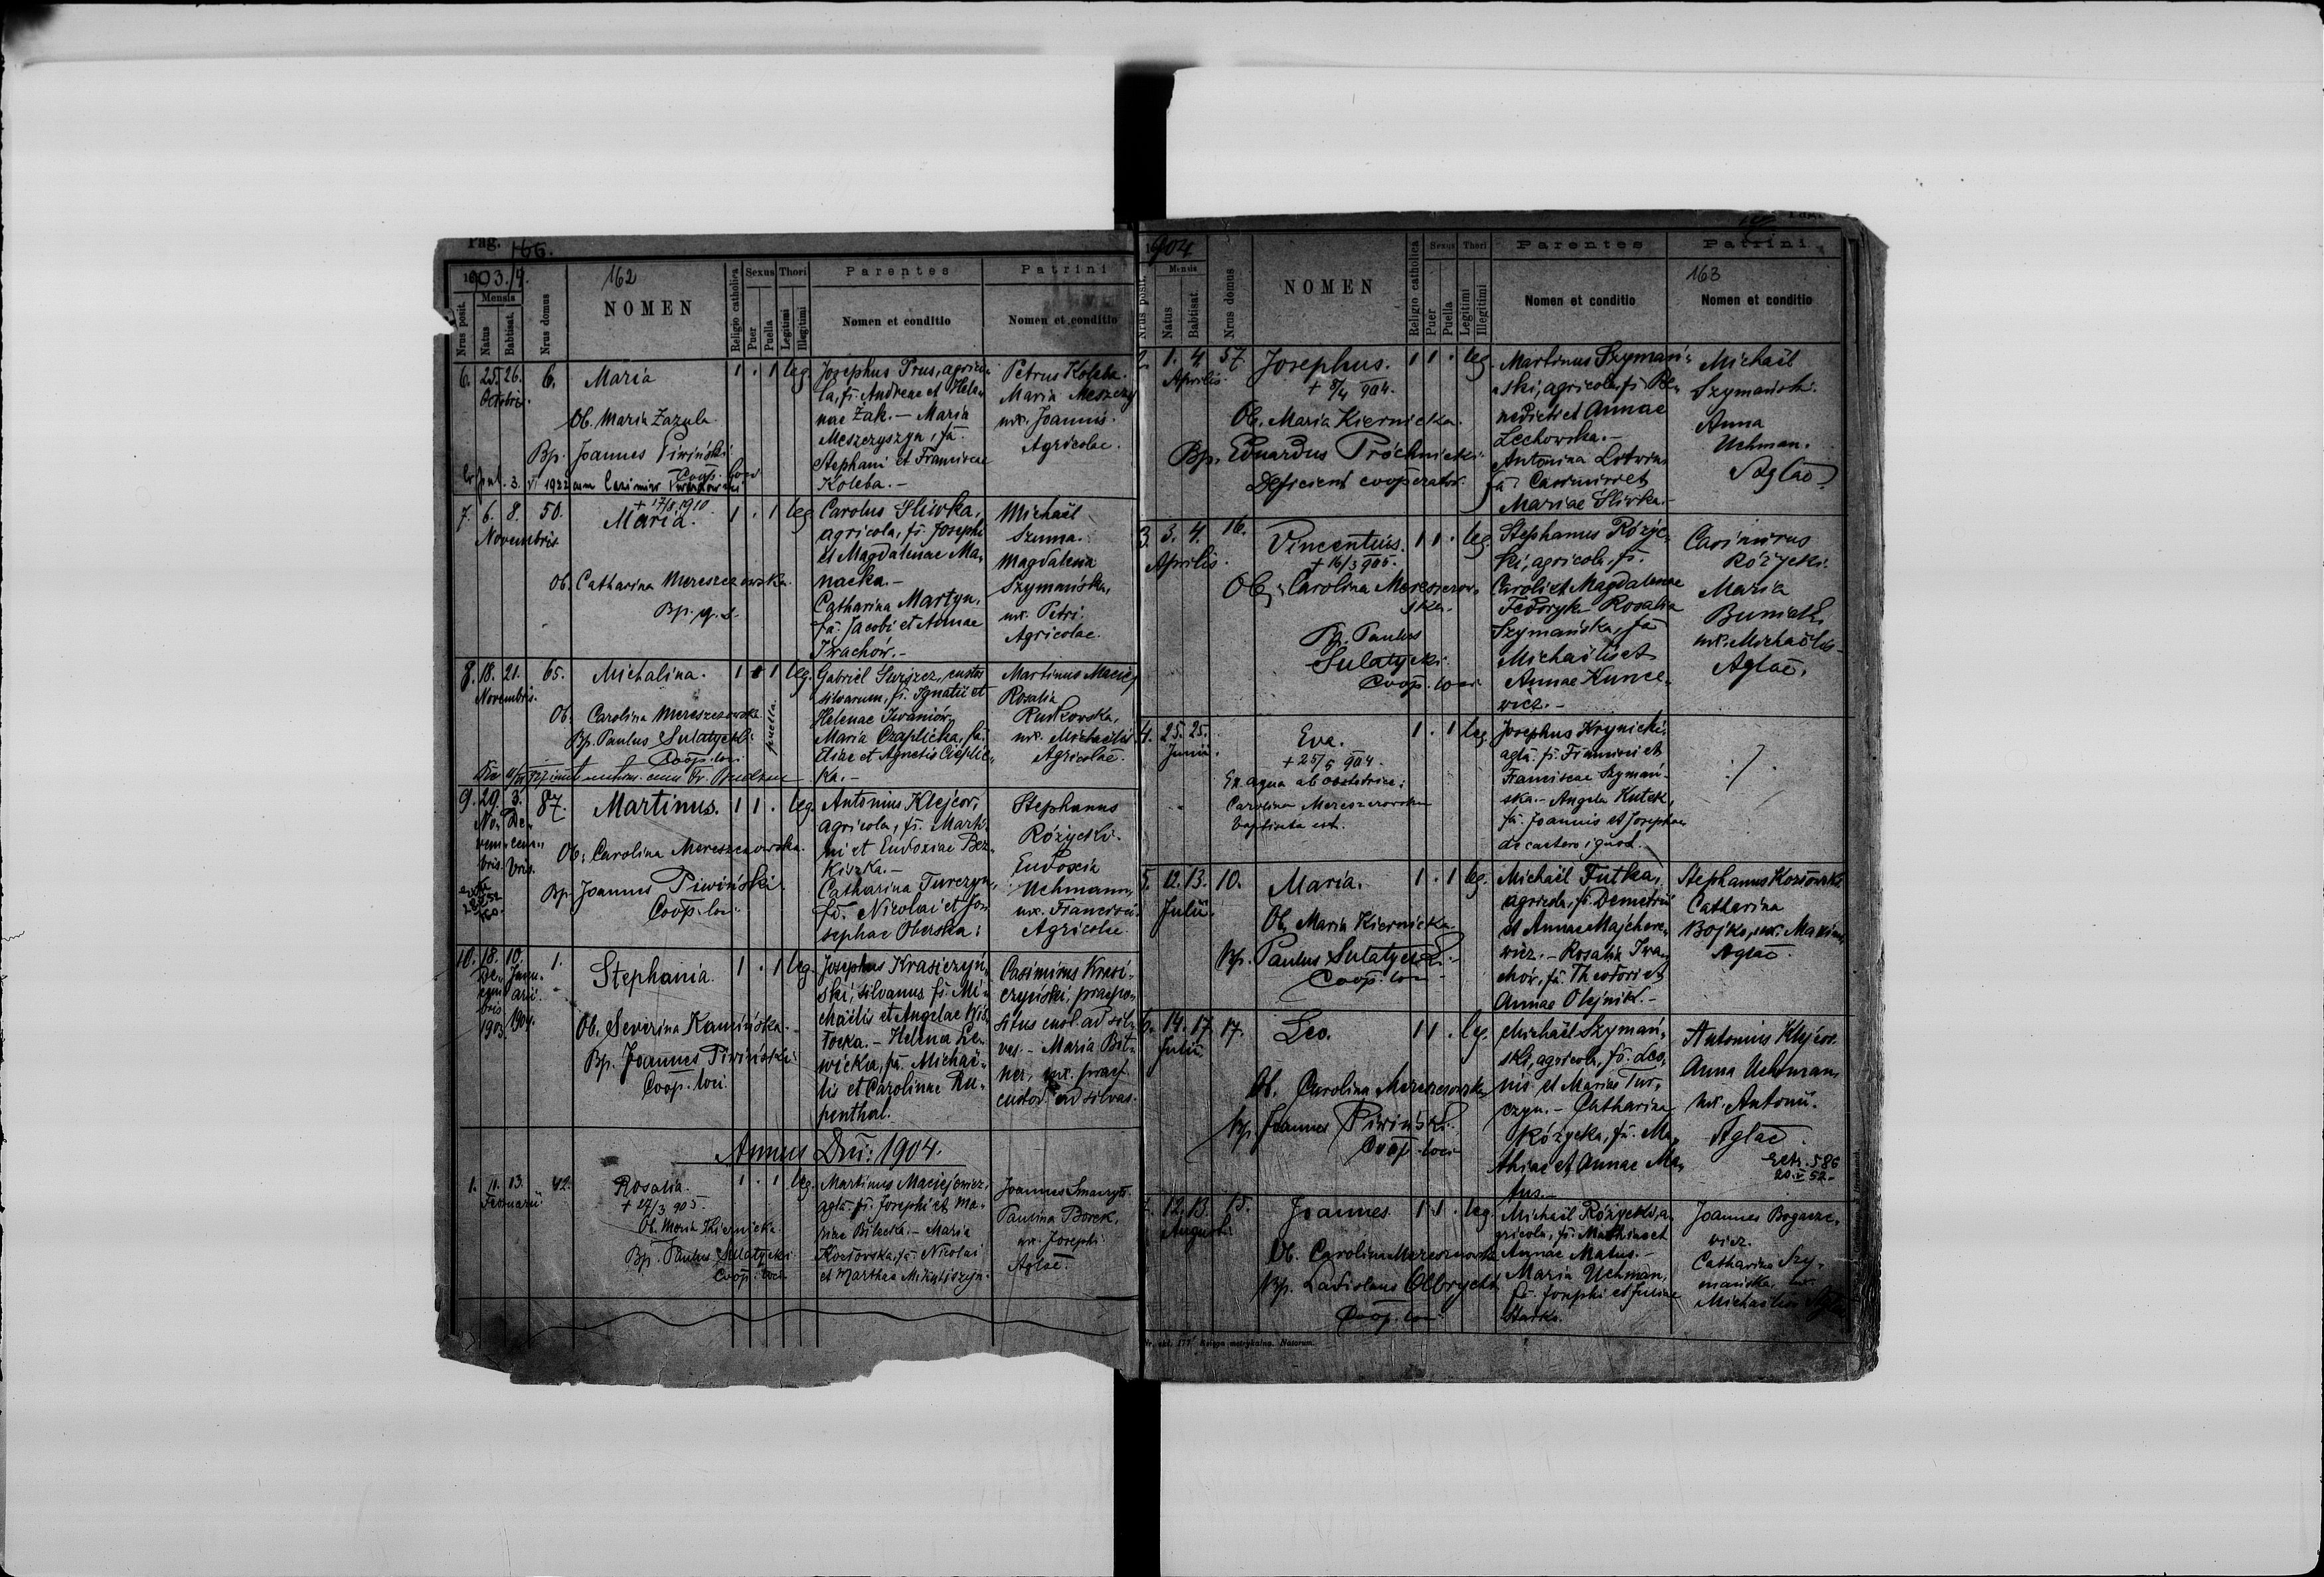 Pag. 166.
1903./4.
162
Nrus posit.
Mensis
Natus
Babtisat.
Nrus domus
NOMEN
Religio catholica
Sexus
Puer
Puella
Thori
Legitimi
Illegitimi
Parentes
Nomen et conditio
Patrini
Nomen et conditio
6. 25. 26. 6. Maria 1 . 1 leg.
Octobris.
Ob. Maria Zazula.
Bp. Joannes Piwiński
Coop. loci
3. VI 1922 cum Casimiro
Josephus Prus, agrico-
la, fs. Andreae et Hele-
nae Żak. — Maria
Meszczyszyn, fa.
Stephani et Franciscae
Koleba. —
Petrus Koleba.
Maria Meszczy
ux. Joannis.
Agricolae.
7. 6. 8. 50. + 17/8 1910
Maria. 1 . 1 leg.
Novembris
Ob. Catharina Mereszczowska.
Bp. q. s.
Carolus Śliwka,
agricola, fs. Josephi
et Magdalenae Ma-
nacka. —
Catharina Martyn,
fa. Jacobi et Annae
Iwachów. —
Michaël
Szuma.
Magdalena
Szymańska,
ux. Petri.
Agricolae.
8. 18. 21. 65. Michalina. 1 . 1 leg.
Novembris.
puella.
Ob. Carolina Mereszczowska
Bp. Paulus Sulatycki
Coop. loci
Gabriel Swiszcz, custos
silvarum, fs. Ignatii et
Helenae Iwaniów,
Maria Czaplicka, fa.
Eliae et Agnetis Cieplic-
ka. —
Martinus Maciej
Rosalia
Rutkowska,
ux. Michaëlis
Agricolae.
9. 29. 3. 87. Martinus. 1 1 . leg.
No- De-
vem- cem-
bris. bris.
Ob. Carolina Mereszczowska.
Bp. Joannes Piwiński
Coop. loci
Antonius Klejcor,
agricola, fs. Marti-
ni et Eudoxiae Bez-
kiszka. —
Catharina Turczyn,
fa. Nicolai et Jo-
sephae Oberska.
Stephanus
Różycki.
Eudoxia
Uchmann,
ux. Francisci.
Agricolae.
10. 18. 10. 1. Stephania. 1 . 1 leg.
De- Janu-
cem- arii.
bris
1903. 1904.
Ob. Severina Kamińska.
Bp. Joannes Piwiński
Coop. loci.
Josephus Krasiczyń-
ski, silvanus fs. Mi-
chaëlis et Angelae Wis-
łocka. — Helena Le-
wicka, fa. Michaë-
lis et Carolinae Ru-
penthal.
Casimirus Krasi-
czyński, praepo-
situs cust. ad sil-
vas. — Maria Bit-
ner, ux. praef.
custod. ad silvas.
Annus Dni: 1904.
1. 11. 13. 42. Rosalia. 1 . 1 leg.
Februarii
+ 27/3 905.
Ob. Maria Kiernicka
Bp. Paulus Sulatycki
Coop. loci
Martinus Maciejowicz,
agla. fs. Josephi et Ma-
riae Bilecki. — Maria
Kozłowska, fa. Nicolai
et Marthae Mikuliszyn.
Joannes
Paulina Borek,
ux. Josephi.
Aglae.
1904
163
Nrus posit.
Mensis
Natus
Babtisat.
Nrus domus
NOMEN
Religio catholica
Sexus
Puer
Puella
Thori
Legitimi
Illegitimi
Parentes
Nomen et conditio
Patrini
Nomen et conditio
2. 1. 4. 57. Josephus. 1 1 . leg.
Aprilis.
+ 8/4 904.
Ob. Maria Kiernicka.
Bp. Eduardus Próchnicki
Deficient cooperator.
Martinus Szymań-
ski, agricola, fs. Be-
nedicti et Annae
Lechowska. —
Antonina Lotwin
fa. Casimiri et
Mariae Śliwka. —
Michaël
Szymański.
Anna
Uchman.
Aglae.
3. 3. 4. 16. Vincentius. 1 1 . leg.
Aprilis.
+ 16/3 905.
Ob. Carolina Mereszczow-
ska.
Bp. Paulus
Sulatycki
Coop. loci
Stephanus Różyc-
ki, agricola, fs.
Caroli et Magdalenae
Fedoryk. Rosalia
Szymańska, fa.
Michaëlis et
Annae Kunce-
wicz. —
Casimirus
Różycki.
Maria
Buniak,
ux. Michaëlis —
Aglae.
4. 25. 25. Eva. 1 . 1 leg.
Junii.
+ 25/5 904.
Ex aqua ab obstetrice:
Carolina Mereszczowska
baptisata est.
Josephus Krynicki,
agla. fs. Francisci et
Franciscae Szymań-
ska. — Angela Kutek,
fa. Joannis et Josephae
de caetero ignot.
./.
5. 12. 13. 10. Maria. 1 . 1 leg.
Julii.
Ob. Maria Kiernicka.
Bp. Paulus Sulatycki.
Coop. loci
Michaël Futka,
agricola, fs. Demetrii
et Annae Majchere-
wicz. — Rosalia Iwa-
chów, fa. Theodori et
Annae Olejnik. —
Stephanus Kozłowski
Catharina
Bojko, ux. Maximi
Aglae.
6. 14. 17. 17. Leo. 1 1 . leg.
Julii
Ob. Carolina Mereszczowska
Bp. Joannes Piwiński.
Coop. loci
Michaël Szymań-
ski, agricola, fs. Leo-
nis et Mariae Tur-
czyn. — Catharina
Różycka, fa. Ma-
thiae et Annae Ma-
tus. —
Antonius Klejcor.
Anna Uchman,
ux. Antonii.
Aglae.
Extr. 586
20.V 52.
7. 12. 13. 15. Joannes. 1 1 . leg.
Augusti.
Ob. Carolina Mereszczowska
Bp. Ladislaus Olbrycht
Coop. loci
Michaël Różycki, a-
gricola, fs. Mathiae et
Annae Matus. —
Maria Uchman,
fa. Josephi et Juliae
Starko.
Joannes Bogacze-
wicz.
Catharina Szy-
mańska, ux.
Michaëlis Aglae
Księga metrykalna. Natorum.